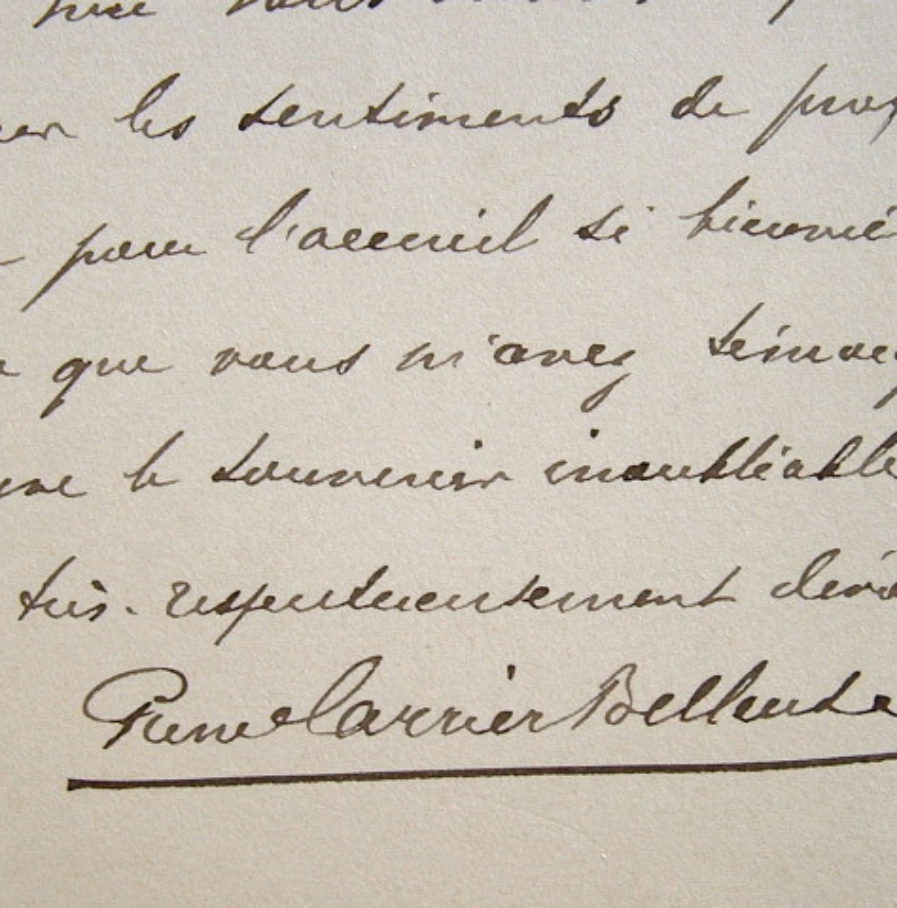 vous
les sentiments de prof
pour l'accueil si bienvei
que vous m'avez témoig
le souvenir inoubliable
très. respectueusement dévo
Pierre Carrier Belleuse